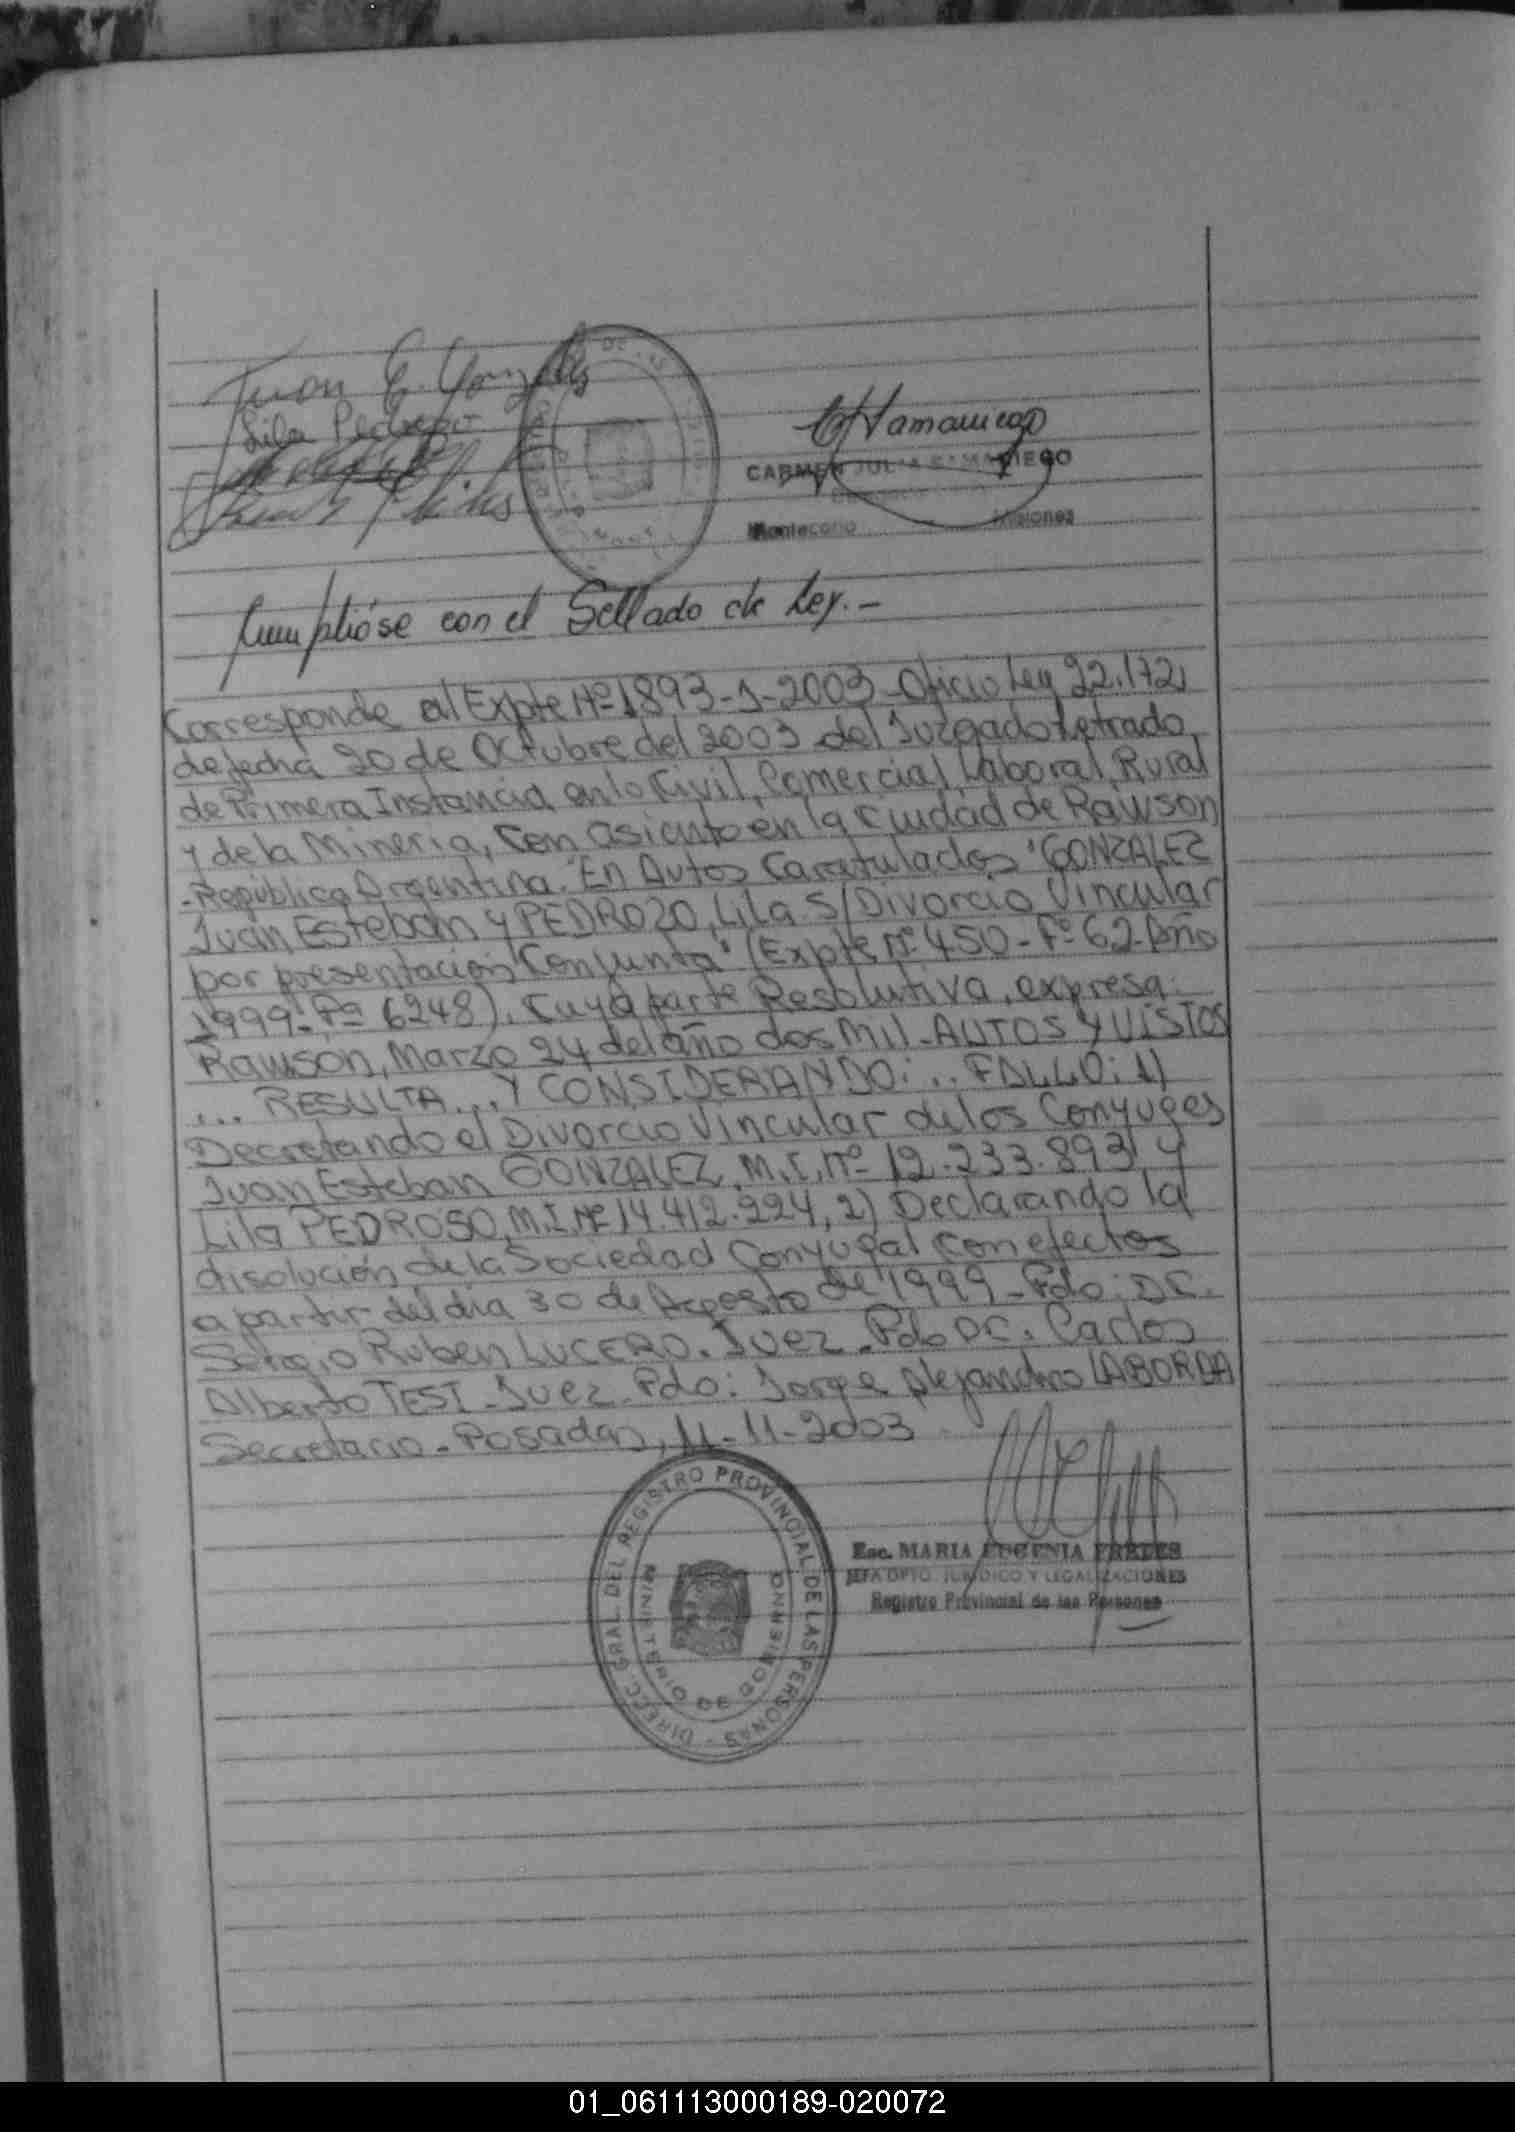 Juan E. Gonzalez
Lila Pedrozo
CARMEN JULIA SAMANIEGO
Montecarlo Misiones
Cumplióse con el Sellado de Ley.-
Corresponde al Expte Nº 1893-J-2003-Oficio Ley 22.172,
de fecha 20 de Octubre del 2003 del Juzgado Letrado
de Primera Instancia en lo Civil, Comercial, Laboral, Rural
y de la Mineria, con asiento en la ciudad de Rawson
-República Argentina. En Autos Caratulados "GONZALEZ
Juan Esteban y PEDROZO, Lila S/Divorcio Vincular
por presentación Conjunta" (Expte Nº 450-Fº 62-Año
1999-Fª 6248). Cuya parte Resolutiva, expresa:
Rawson, Marzo 24 del año dos Mil-AUTOS Y VISTOS
... RESULTA... Y CONSIDERANDO:... FALLO: 1)
Decretando el Divorcio Vincular de los Conyuges
Juan Esteban GONZALEZ, M.I. nº 12.233.893 y
Lila PEDROSO, M.I. Nº 14.412.224, 2) Declarando la
disolución de la Sociedad Conyugal con efectos
a partir del dia 30 de Agosto de 1999-Fdo: Dr.
Sergio Ruben LUCERO. Juez-Fdo Dr. Carlos
Alberto TESI-Juez-Fdo: Jorge Alejandro LABORDA
Secretario-Posadas, 11-11-2003
DIRECC. GRAL. DEL REGISTRO PROVINCIAL DE LAS PERSONAS -
MINISTERIO DE GOBIERNO
Esc. MARIA EUGENIA FRETES
JEFA DPTO. JURIDICO Y LEGALIZACIONES
Registro Provincial de las Personas
01_061113000189-020072